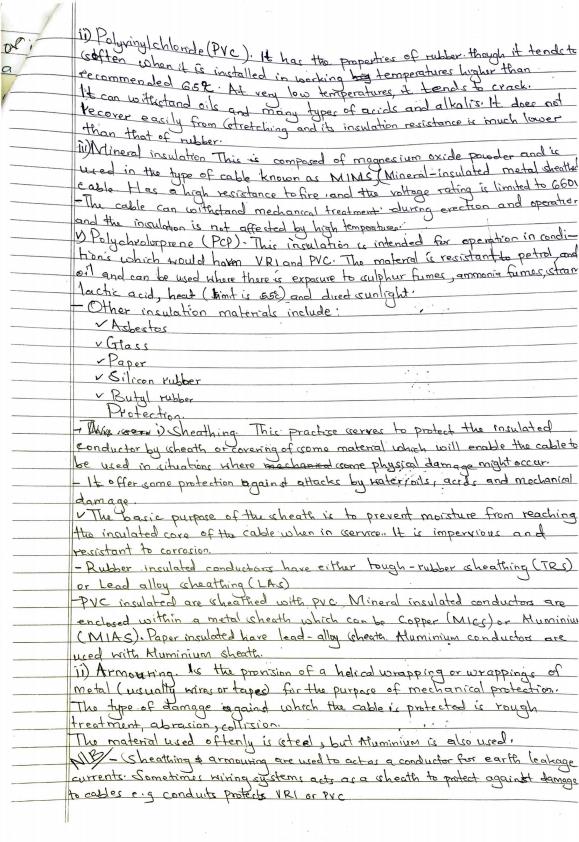 ii) Polyvinylchloride (PVC). It has the properties of rubber though it tends to
soften when it is installed in working temperatures higher than
recommended 65°C. At very low temperatures it tends to crack.
It can withstand oils and many types of acids and alkalis. It does not
recover easily from stretching and its insulation resistance is much lower
than that of rubber.
iii) Mineral insulation This is composed of magnesium oxide powder and is
used in the type of cable known as MIMS (Mineral-insulated metal sheathed
cable Has a high resistance to fire and the voltage rating is limited to 660V
- The cable can withstand mechanical treatment during erection and operation
and the insulation is not affected by high temperature.
v) Polychloroprene (PCP) - This insulation is intended for operation in condi-
tions which would harm VRI and PVC. The material is resistant to petrol, and
oil and can be used where there is exposure to sulphur fumes, ammonia fumes, steam
lactic acid, heat (limit is 65°C) and direct sunlight.
- Other insulation materials include:
✓ Asbestos
✓ Glass
✓ Paper
✓ Silicon rubber
✓ Butyl rubber
Protection.
i) Sheathing. This practise serves to protect the insulated
conductor by sheath or covering of some material which will enable the cable to
be used in situations where some physical damage might occur.
- It offer some protection against attacks by water, oils, acids and mechanical
damage.
✓ The basic purpose of the sheath is to prevent moisture from reaching
the insulated core of the cable when in service. It is impervious and
resistant to corrosion.
- Rubber insulated conductors have either tough-rubber sheathing (TRS)
or Lead alloy sheathing (LAS)
- PVC insulated are sheathed with PVC, Mineral insulated conductors are
enclosed within a metal sheath which can be Copper (MICS) or Aluminium
(MIAS). Paper insulated have lead-alloy sheath Aluminium conductors are
used with Aluminium sheath.
ii) Armouring. Is the provision of a helical wrapping or wrappings of
metal (usually wires or tapes) for the purpose of mechanical protection.
The type of damage against which the cable is protected is rough
treatment, abrasion, collision.
The material used oftenly is steel, but Aluminium is also used.
N/B/ - Sheathing & armouring are used to act as a conductor for earth leakage
currents. Sometimes wiring systems acts as a sheath to protect against damage
to cables e.g conduits protects VRI or PVC